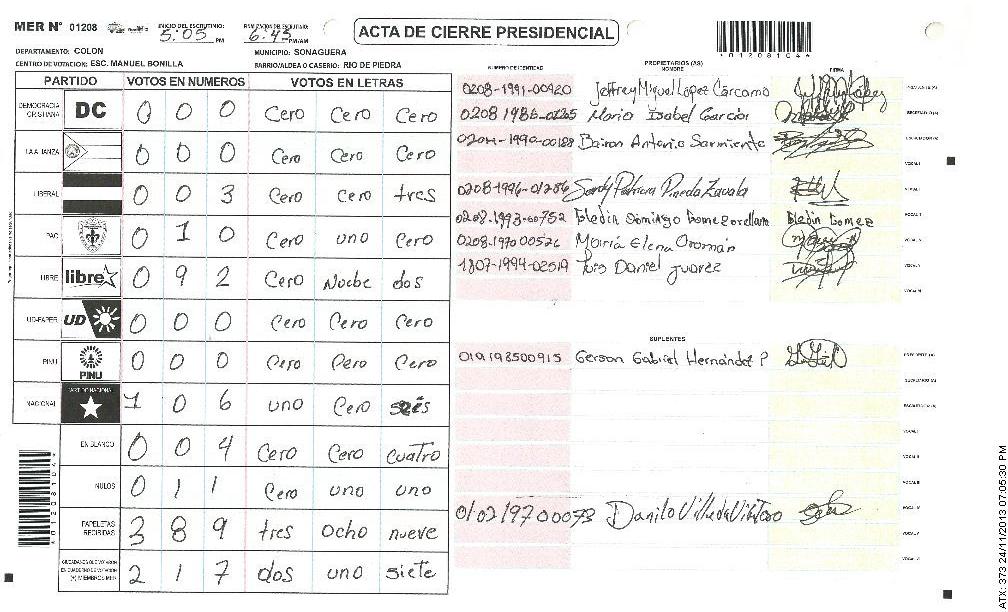 MER N° 01208 INICIO DEL ESCRUTINIO: 5:05 PM 6:45 PM/AM
ACTA DE CIERRE PRESIDENCIAL
*01208104*
DEPARTAMENTO: COLON MUNICIPIO: SONAGUERA
CENTRO DE VOTACION: ESC. MANUEL BONILLA BARRIO/ALDEA O CASERIO: RIO DE PIEDRA
PARTIDO VOTOS EN NUMEROS VOTOS EN LETRAS
DEMOCRACIA CRISTIANA DC 0 0 0 Cero Cero Cero
LA ALIANZA 0 0 0 Cero Cero Cero
LIBERAL 0 0 3 Cero Cero tres
PAC 0 1 0 Cero uno Cero
LIBRE libre 0 9 2 Cero Nuebe dos
UD-FAPER UD 0 0 0 Cero Cero Cero
PINU PINU 0 0 0 Cero Cero Cero
NACIONAL PARTIDO NACIONAL 1 0 6 uno Cero seis
EN BLANCO 0 0 4 Cero Cero cuatro
NULOS 0 1 1 Cero uno uno
PAPELETAS RECIBIDAS 3 8 9 tres ocho nueve
CIUDADANOS QUE VOTARON EN CUADERNO DE VOTACION (+) MIEMBROS MER 2 1 7 dos uno siete
*01208104*
PROPIETARIOS (AS)
NUMERO DE IDENTIDAD NOMBRE FIRMA
0208-1991-00920 Jeffrey Miguel Lopez Cárcamo
Maria Isabel Garcia
Bairon Antonio Sarmiento
0208-1996-01286 Sandy Patricia Pineda Zavala
0208-1993-00752 Eledin Domingo Gomez orellana Eledin Gomez
0208-1970 00526 María Elena Oromán
1807-1994-02519 Luis Daniel juarez
SUPLENTES
Gerson Gabriel Hernández P
0102197000073 Danilo
ATX: 373 24/11/2013 07:05:30 PM